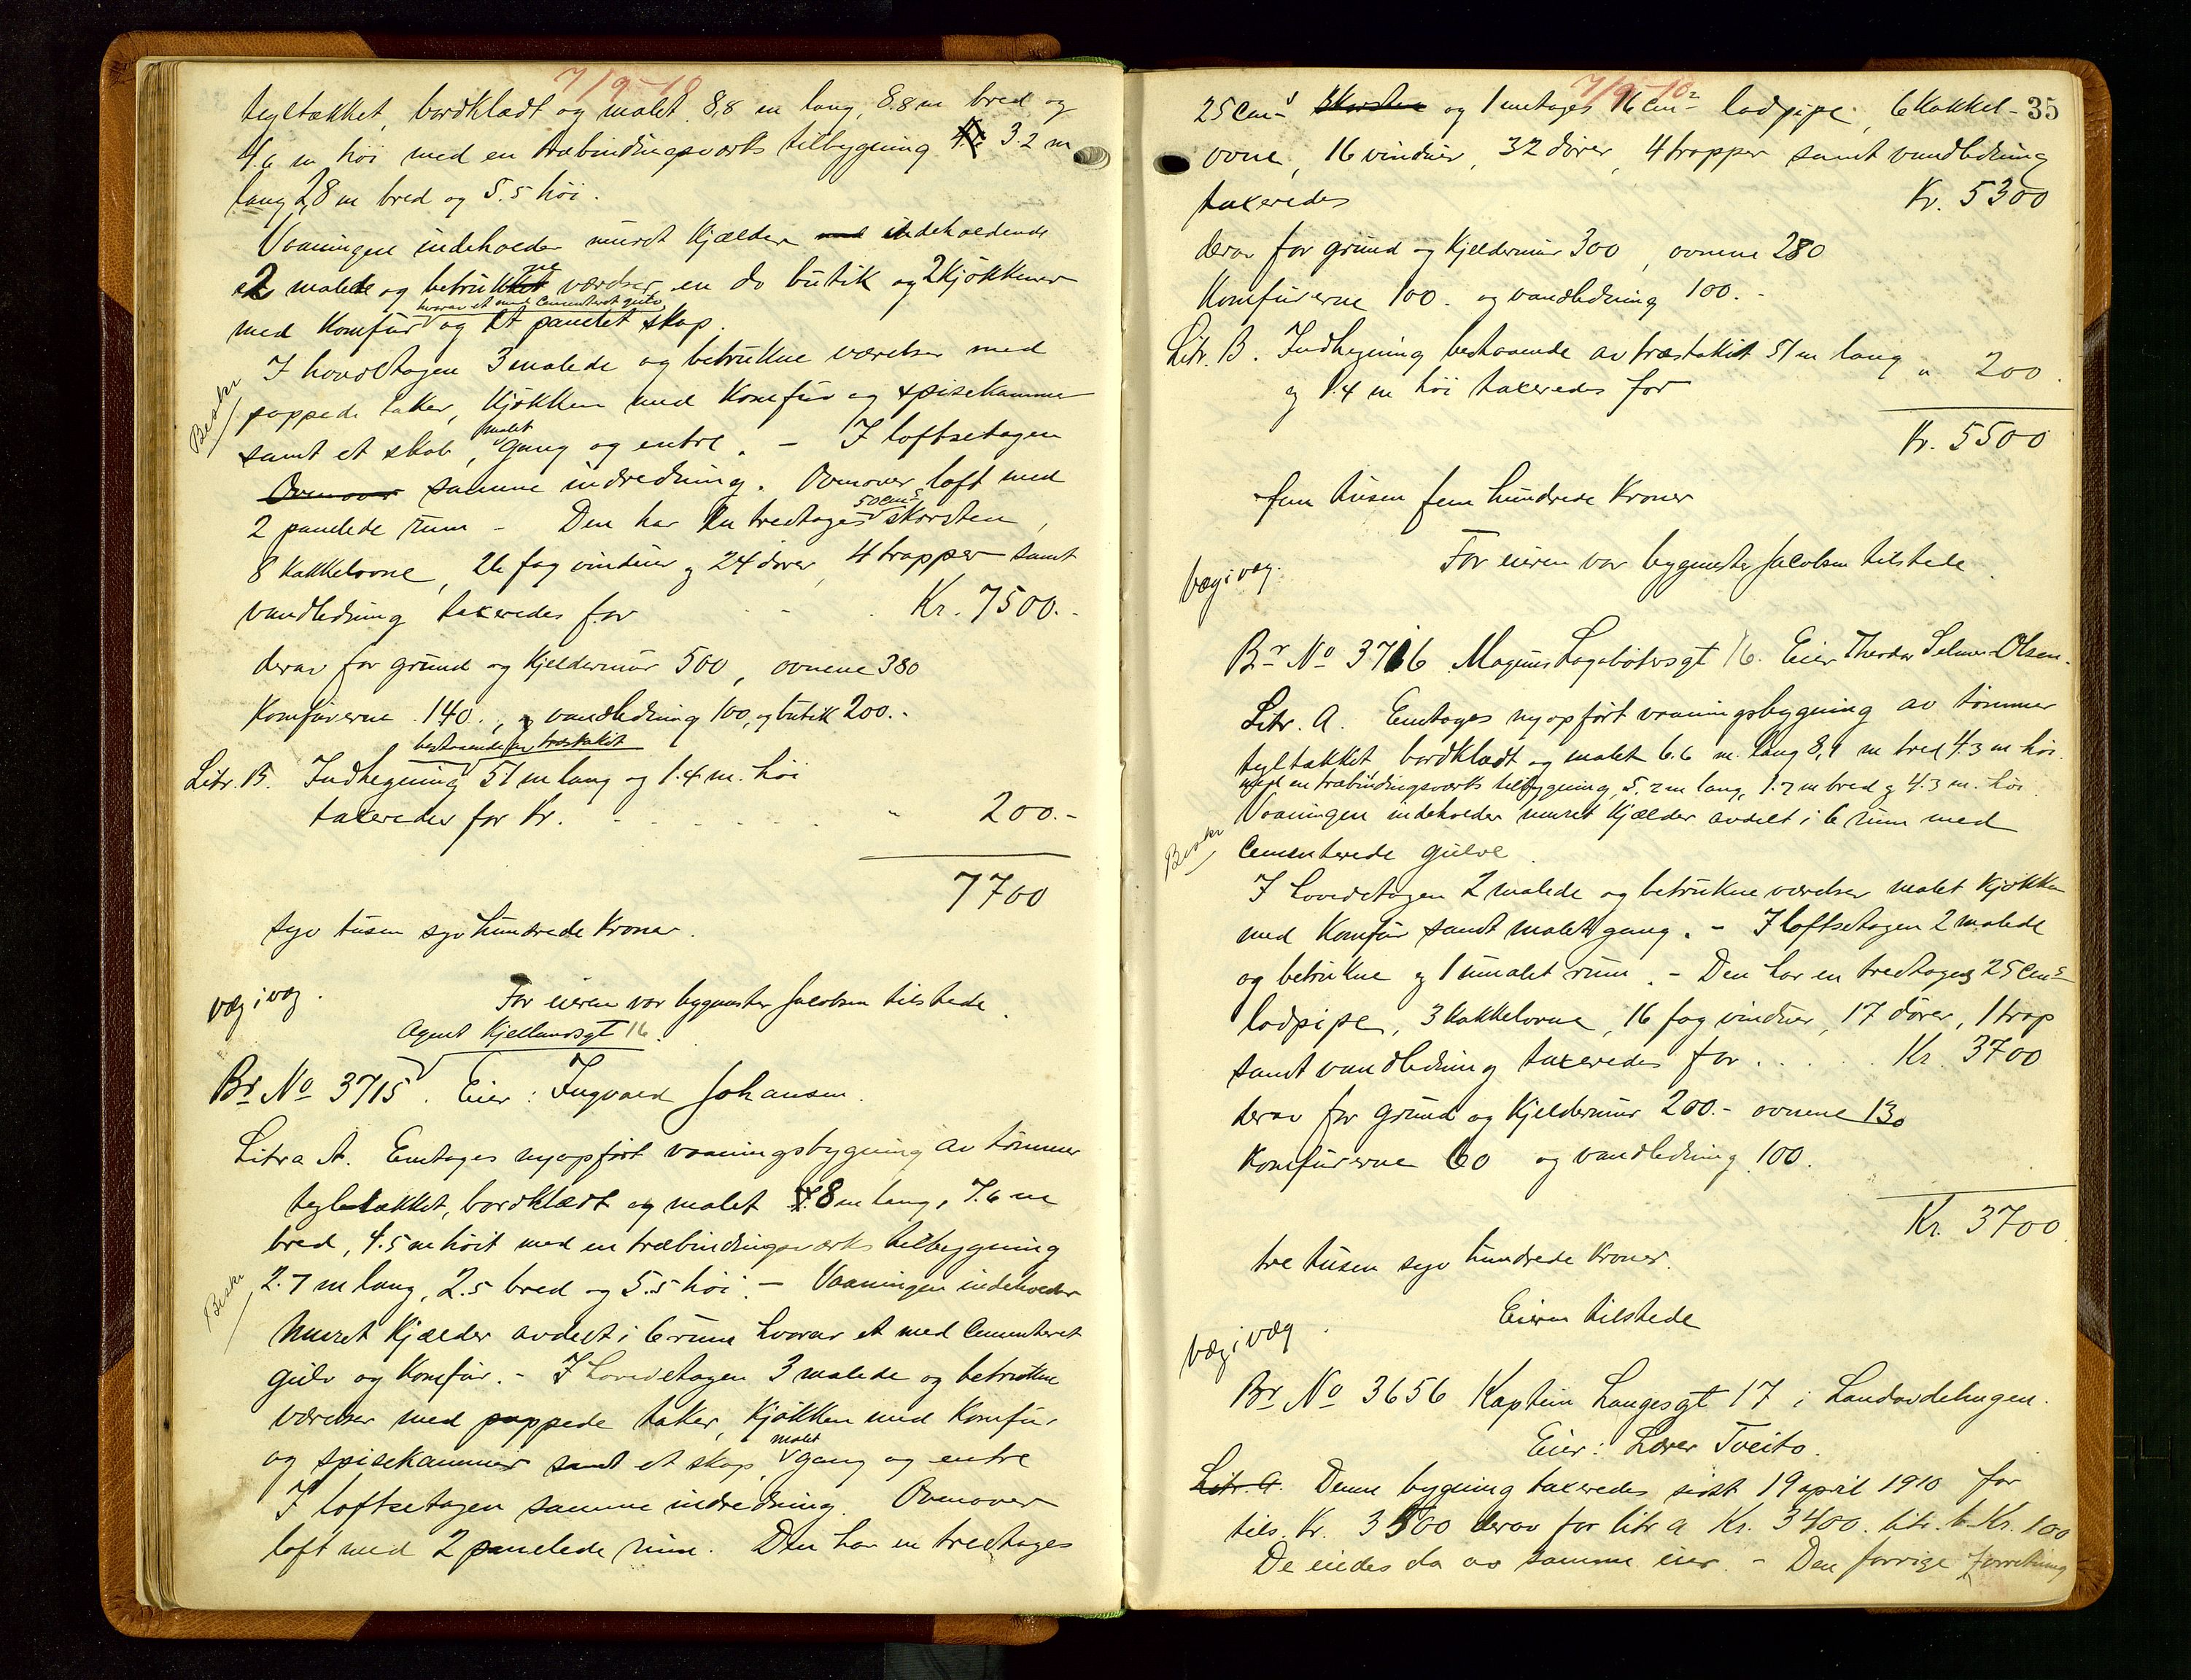 7/9-10
tegltækket, bordklædt og malet 8,8 m lang, 8.8 m bred og
4.6 m høi med en træbindingsværks tilbygning 3.2 m
lang 2,8 m bred og 5.5 høi.
Vaaningen indeholder muret Kjælder indeholdende
2 malede og betrukne værelser, en do butik og 2 Kjøkkener
hvorav et med Cementeret gulv
med Komfür og et panelet skap.
I hovedetagen 3 malede og betrukne værelser med
Beskr
pappede taker, Kjøkken med Komfür og spisekammer
samt et skab, malet gang og entre. - I loftsetagen
Ovenover samme indredning. Ovenover loft med
2 panelede rum - Den har en tredtages 50 cm² skorsten,
8 Kakkelovne, 26 fag vinduer og 24 dører, 4 trapper samt
vandledning taxeredes for Kr. 7500.-
derav for grund og Kjeldermür 500, ovnene 380
Komfürerne 140., og vandledning 100, og butik 200.-
bestaaende av træstakit
Litr. B. Indhegning 51 m lang og 1.4 m. høi
taxeredes for Kr. - - - - - " 200.-
7700
syv tusen syv hundrede Kroner.
væg i væg. For eieren var bygmester Jacobsen tilstede.
Agent Kjellandsgt 16.
Br No 3715. Eier: Ingvald Johansen.
Litra A. Enetages nyopført vaaningsbygning av tømmer
tegltækket, bordklædt og malet 8 m lang, 7.6 m
bred, 4.5 m høit med en træbindingsværks tilbygning
Beskr
2.7 m lang, 2.5 bred og 5.5 høi. - Vaaningen indeholder
Muret Kjælder avdelt i 6 rum hvorav et med Cementeret
gulv og Komfür. - I Hovedetagen 3 malede og betrukne
værelser med pappede taker, Kjøkken med Komfür
og spisekammer samt et skap, malet gang og entre
I loftsetagen samme indredning. Ovenover
loft med 2 panelede rum. Den har en tredtages
7/9-10
35
25 cm² Skorsten og 1 enetages 16 cm² lodpipe, 6 Kakkel-
ovne, 16 vinduer, 32 dører, 4 trapper samt vandledning
taxeredes Kr. 5300
derav for grund og Kjeldermür 300, ovnene 280
Komfürerne 100.- og vandledning 100.-
Litr. B. Indhegning bestaaende av træstakit 51 m lang
og 1.4 m høi taxeredes for " 200.
Kr. 5500
fem tusen fem hundrede Kroner
væg i væg. For eieren var bygmester Jacobsen tilstede.
Br No 3716 Magnus Lagabøtersgt 16. Eier Theodor Selmer Olsen.
Litr. A. Enetages nyopført vaaningsbygning av tømmer
tegltækket, bordklædt og malet 6.6 m. lang 8,9 m bred 4.3 m høi.
med en træbindingsværks tilbygning, 5.2 m lang, 1.7 m bred og 4.3 m. høi.
Vaaningen indeholder muret Kjælder avdelt i 6 rum med
Beskr
Cementerede gulve.
I Hovedetagen 2 malede og betrukne værelser malet Kjøkken
med Komfür samt malet gang. - I loftsetagen 2 malede
og betrukne og 1 umalet rum. - Den har en tredtages 25 cm²
lodpipe, 3 Kakkelovne, 16 fag vinduer, 17 dører, 1 trap
samt vandledning taxeredes for . . . . Kr. 3700
derav for grund og Kjeldermür 200.- ovnene 130
Komfürerne 60 og vandledning 100.
Kr. 3700
tre tusen syv hundrede Kroner.
væg i væg. Eieren tilstede
Br No 3656 Kaptein Langesgt 17 i Landavdelingen.
Eier: Lærer Tveito.
Litr. A. Denne bygning taxeredes sidst 19 april 1910 for
tils. Kr. 3500 derav for litr a Kr. 3400. litr. b Kr. 100
De eiedes da av samme eier. - Den forrige forretning